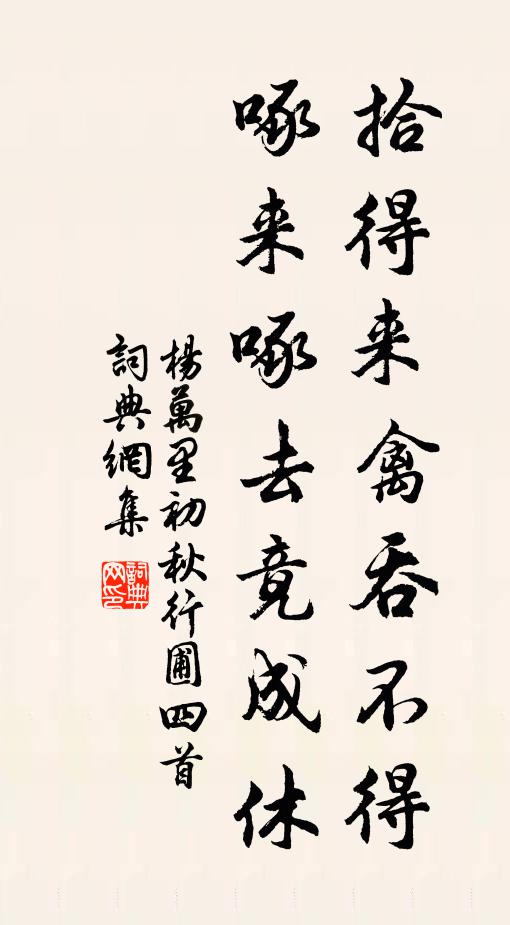 拾得来禽吞不得
啄来啄去竟成休
楊萬里初秋行圃四首
詞典網集
詞典网印